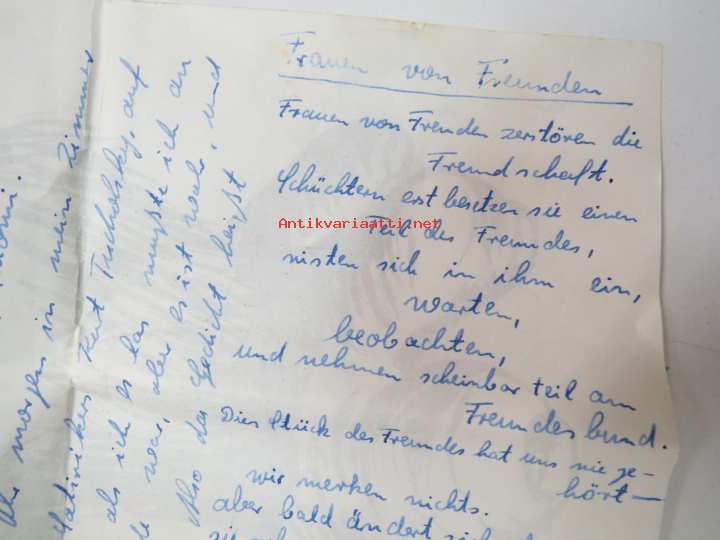 Frauen von Freunden
Frauen von Freunden zerstören die
Freundschaft.
Schüchtern erst besetzen sie einen
Teil des Freundes,
nisten sich in ihm ein,
warten,
beobachten,
und nehmen scheinbar teil am
Freundesbund.
Dies Stück des Freundes hat uns nie ge-
hört—
wir merken nichts.
aber bald ändert sich
morgen in mein Zimmer
Satirikers Kurt Tucholsky, auf
als ich es las mußte ich an
war, aber es ist wahr, und
Also das Gedicht heißt
Antikvariaatti.net